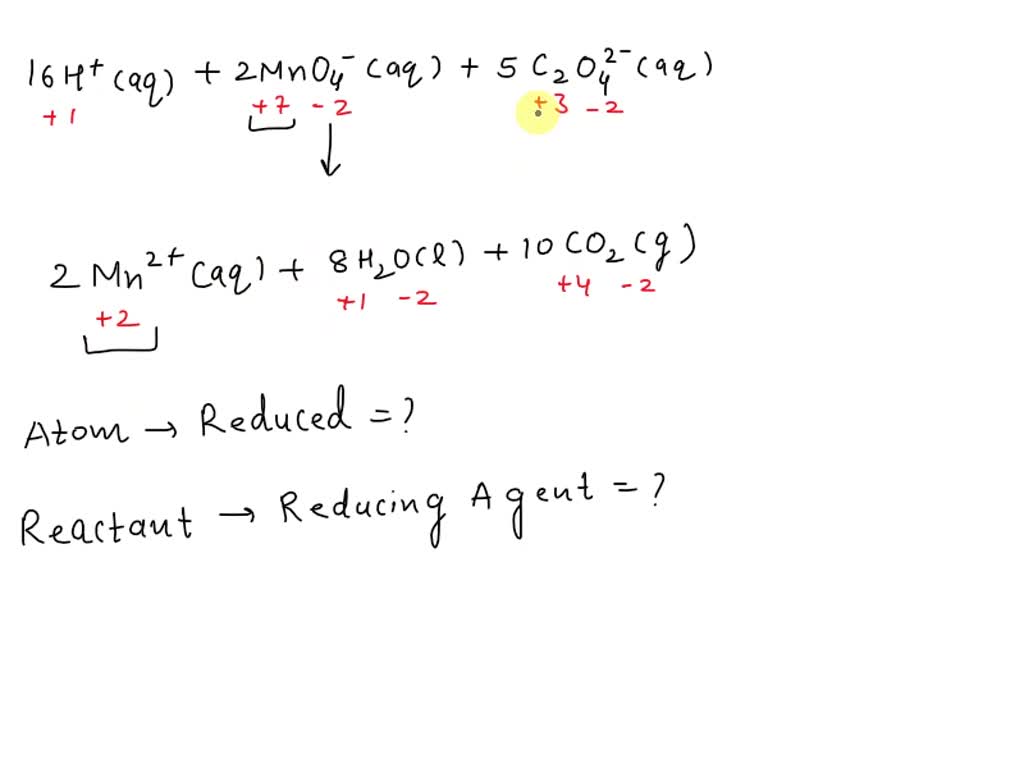 16H⁺(aq) + 2MnO₄⁻(aq) + 5C₂O₄²⁻(aq)
+1 +7 -2 +3 -2
↓
2Mn²⁺(aq) + 8H₂O(l) + 10CO₂(g)
+2 +1 -2 +4 -2
Atom → Reduced = ?
Reactant → Reducing Agent = ?